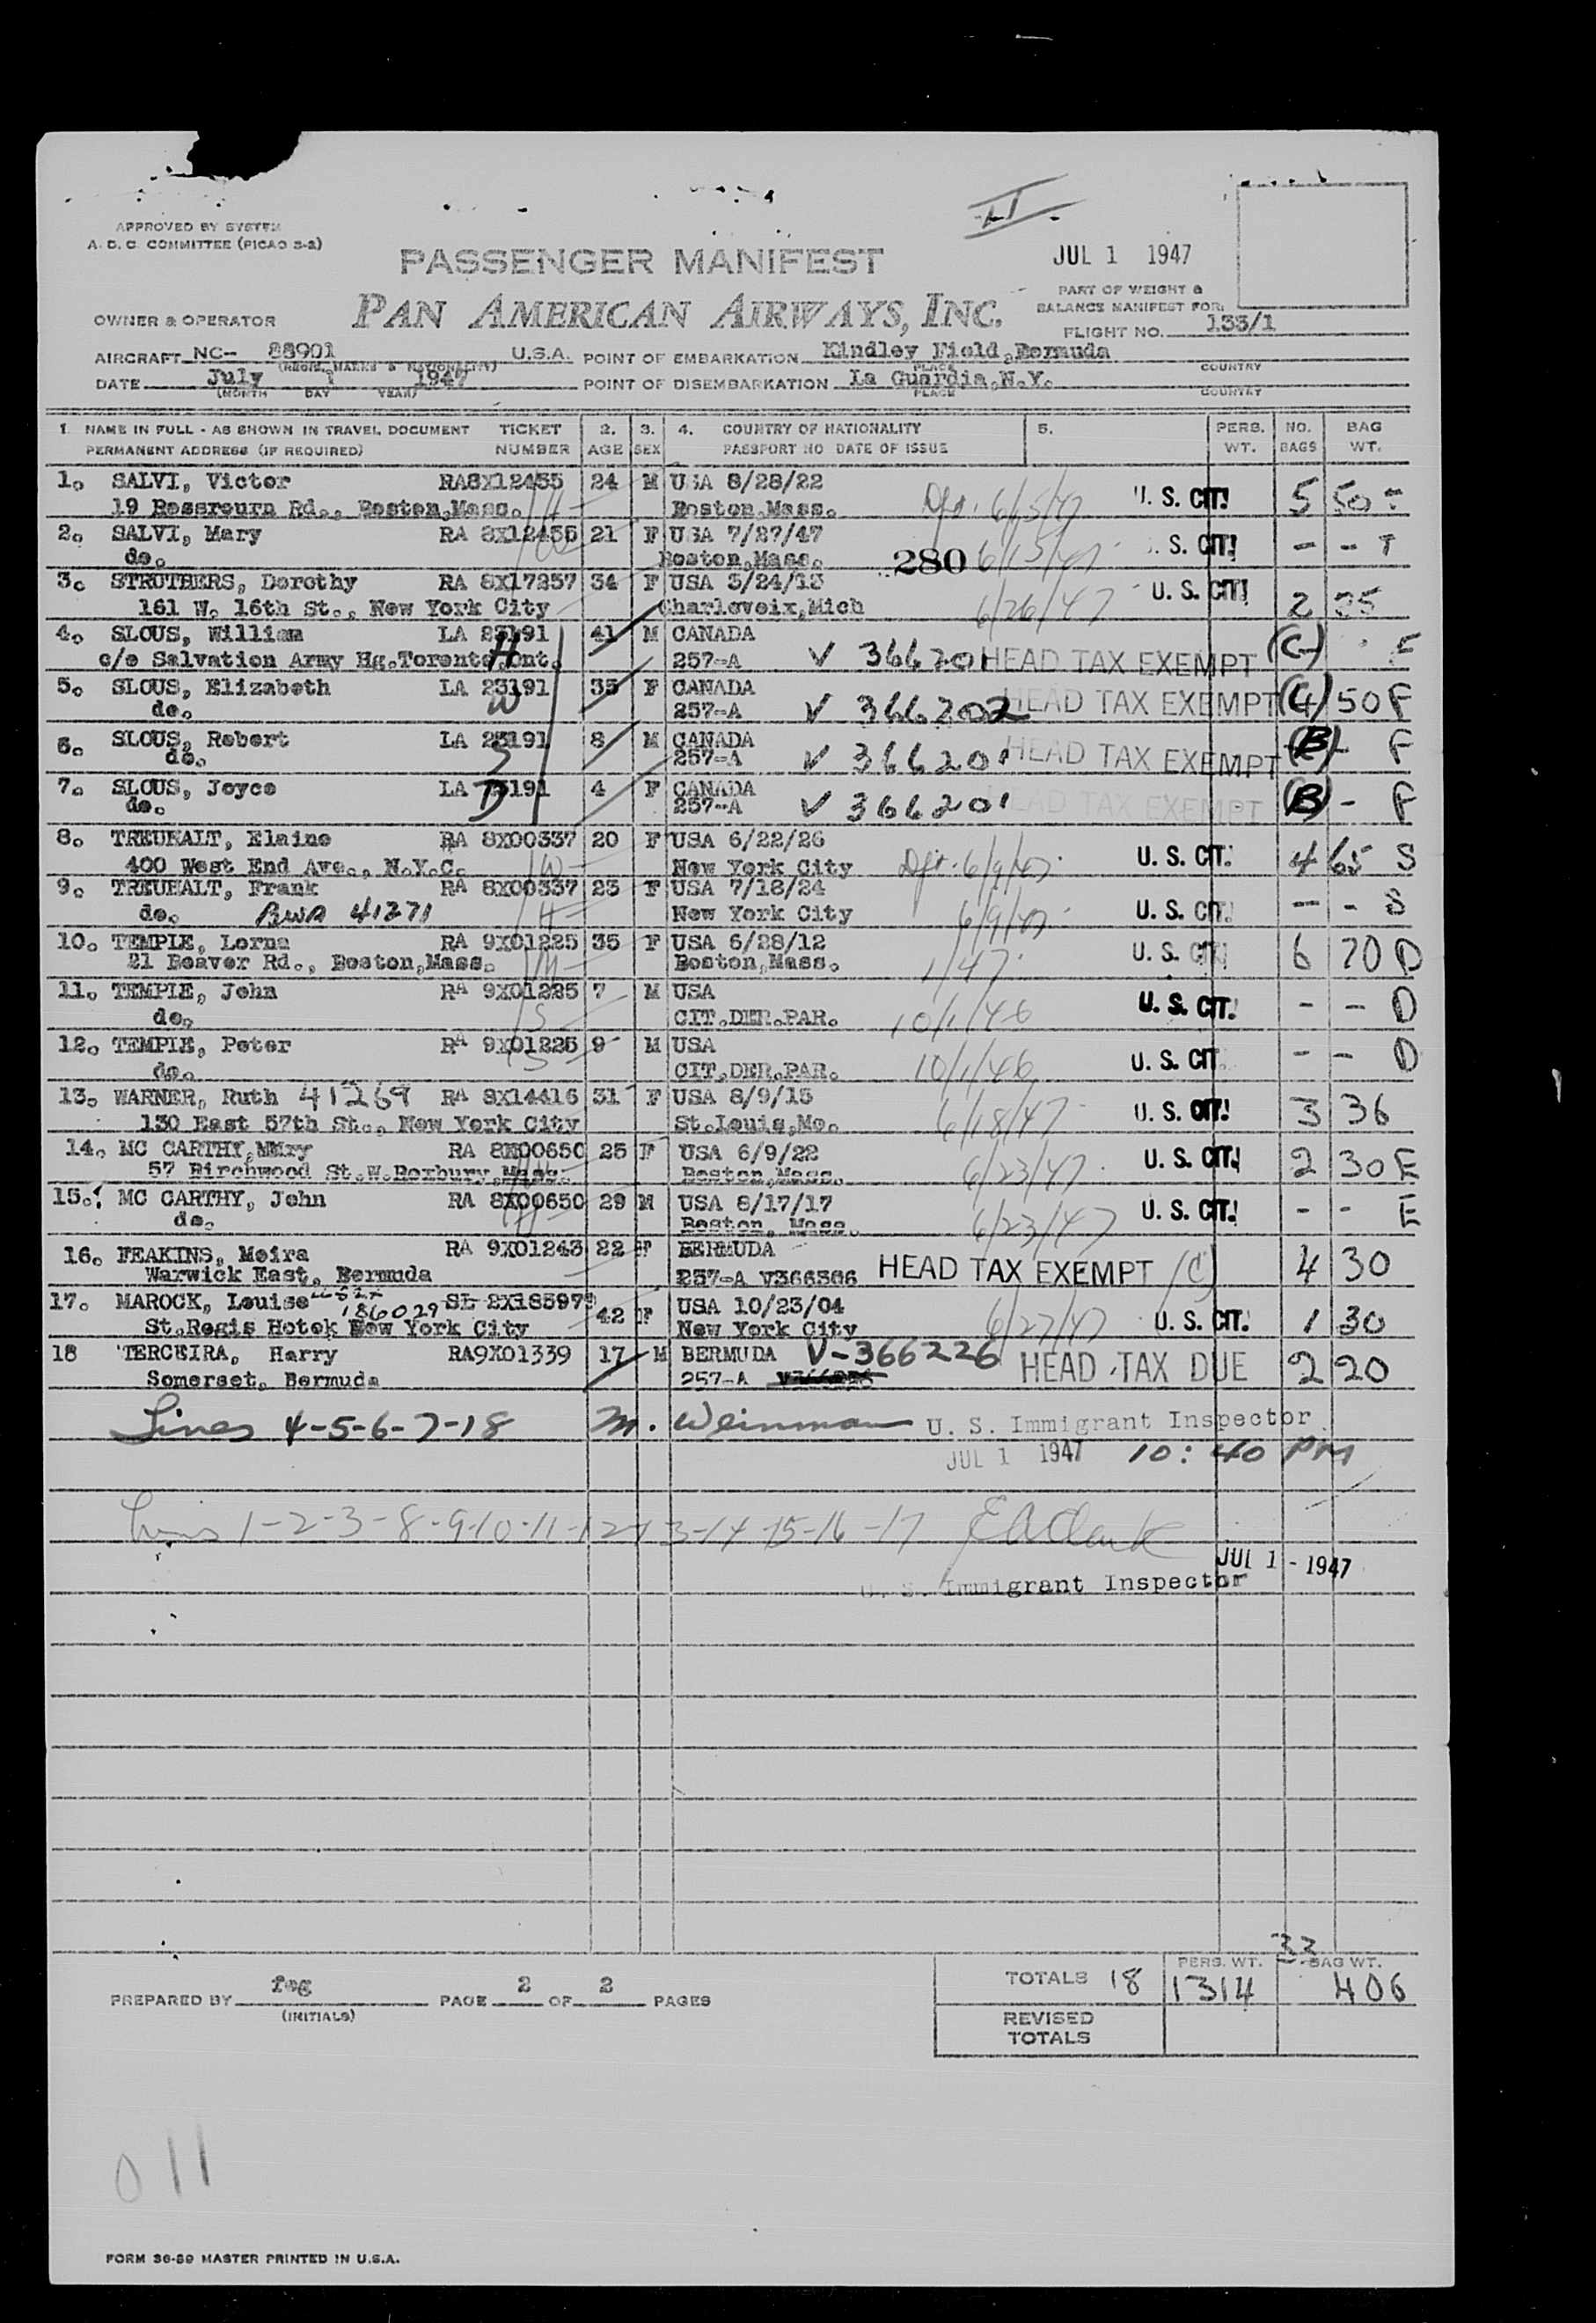 II
APPROVED BY SYSTEM
A. D. C. COMMITTEE (PICAO S-2)
PASSENGER MANIFEST
JUL 1 1947
PART OF WEIGHT &
BALANCE MANIFEST FOR:
OWNER & OPERATOR
PAN AMERICAN AIRWAYS, INC.
FLIGHT NO. 133/1
AIRCRAFT NC- 88901 U.S.A. POINT OF EMBARKATION Kindley Field, Bermuda
(REGIS. MARKS & NATIONALITY) PLACE COUNTRY
DATE July 1 1947 POINT OF DISEMBARKATION La Guardia, N.Y.
(MONTH DAY YEAR) PLACE COUNTRY
1. NAME IN FULL - AS SHOWN IN TRAVEL DOCUMENT TICKET 2. 3. 4. COUNTRY OF NATIONALITY 5. PERS. NO. BAG
PERMANENT ADDRESS (IF REQUIRED) NUMBER AGE SEX PASSPORT NO DATE OF ISSUE WT. BAGS WT.
1. SALVI, Victor RA8X12455 24 M USA 8/28/22 U. S. CIT. 5 50
19 Rd., Boston, Mass. H Boston, Mass. 6/13/47
2. SALVI, Mary RA 8X12455 21 F USA 7/27/47 . S. CIT. - -
do. W Boston, Mass. 280 6/13/47
3. STRUTHERS, Dorothy RA 8X17257 34 F USA 3/24/13 U. S. CIT. 2 25
161 W. 16th St., New York City Charlevoix, Mich 6/26/47
4. SLOUS, William LA 23191 41 M CANADA (C) F
c/o Salvation Army Hq. Toronto, Ont. H 257-A V 366201 HEAD TAX EXEMPT
5. SLOUS, Elizabeth LA 23191 35 F CANADA (4) 50 F
do. W 257-A V 366202 HEAD TAX EXEMPT
6. SLOUS, Robert LA 23191 8 M CANADA (B) - F
do. S 257-A V 366201 HEAD TAX EXEMPT
7. SLOUS, Joyce LA 23191 4 F CANADA (B) - F
do. D 257-A V 366201 HEAD TAX EXEMPT
8. TREUHALT, Elaine RA 8X00337 20 F USA 6/22/26 U. S. CIT. 4 65 S
400 West End Ave., N.Y.C. W New York City 6/9/47
9. TREUHALT, Frank RA 8X00337 23 F USA 7/18/24 - - S
do. BWA 41271 H New York City 6/9/47 U. S. CIT.
10. TEMPLE, Lorna RA 9X01225 35 F USA 6/28/12 U. S. CIT. 6 70 D
21 Beaver Rd., Boston, Mass. M Boston, Mass. 1/47
11. TEMPLE, John RA 9X01225 7 M USA U. S. CIT. - - D
do. S CIT.DER.PAR. 10/1/46
12. TEMPLE, Peter RA 9X01225 9 M USA U. S. CIT. - - D
do. S CIT.DER.PAR. 10/1/46
13. WARNER, Ruth 41269 RA 8X14416 31 F USA 8/9/15 U. S. CIT. 3 36
130 East 57th St., New York City St.Louis, Mo. 6/18/47
14. MC CARTHY, MMry RA 8X00650 25 F USA 6/9/22 U. S. CIT. 2 30 E
57 Birchwood St.W.Roxbury, Mass. Boston, Mass. 6/23/47
15. MC CARTHY, John RA 8X00650 29 M USA 8/17/17 U. S. CIT. - - E
do. H Boston, Mass. 6/23/47
16. FEAKINS, Moira RA 9X01243 22 F BERMUDA 4 30
Warwick East, Bermuda 257-A V366306 HEAD TAX EXEMPT (C)
17. MAROCK, Louise 186029 SL 2X185979 42 F USA 10/23/04 U. S. CIT. 1 30
St.Regis Hotek New York City New York City 6/27/47
18 TERCEIRA, Harry RA9X01339 17 M BERMUDA V-366226 HEAD TAX DUE 2 20
Somerset, Bermuda 257-A
Lines 4-5-6-7-18 M. Weinman U. S. Immigrant Inspector
JUL 1 1947 10:40 PM
Lines 1-2-3-8-9-10-11-12-13-14-15-16-17 E A Clark
JUL 1 - 1947
U. S. Immigrant Inspector
33
TOTALS 18 PERS. WT. 1314 BAG WT. 406
PREPARED BY PAGE 2 OF 2 PAGES
(INITIALS)
REVISED
TOTALS
011
FORM 36-89 MASTER PRINTED IN U.S.A.